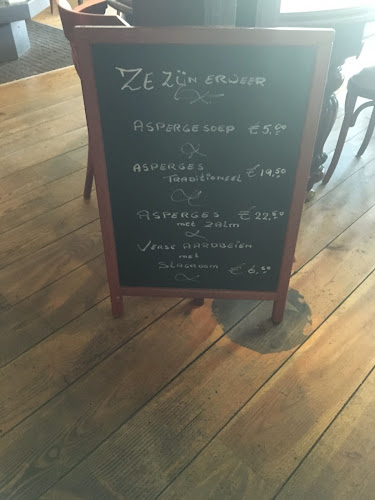 ZE ZIJN ER WEER
ASPERGESOEP €5,00
ASPERGES
TRADITIONEEL €19,50
ASPERGES €22,50
met ZALM
VERSE AARDBEIEN
met
SLAGROOM €6,50